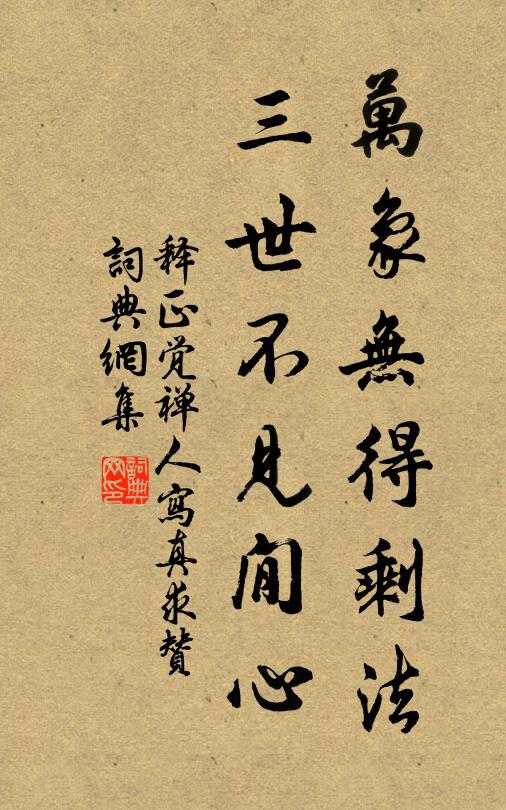 萬象無得剩法
三世不見閒心
释正觉禅人寫真求贊
詞典網集
詞典网印